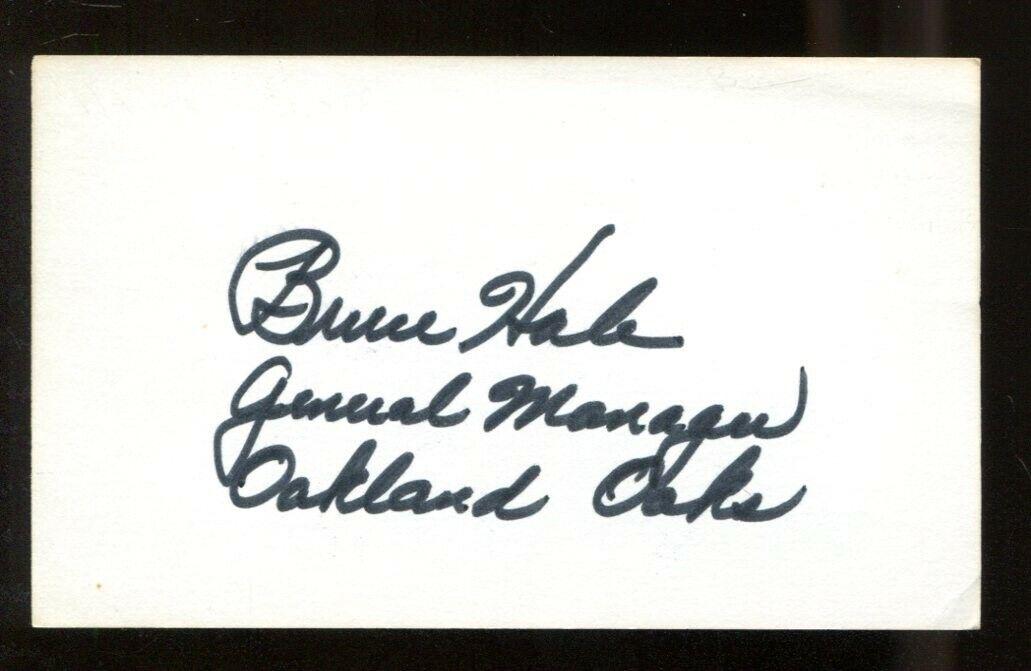 Bruce Hale
General Manager
Oakland Oaks